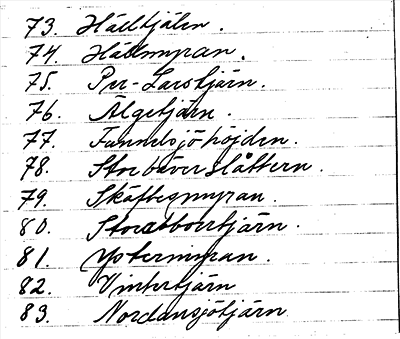 73. Hälltjälen.
74. Hällmyran.
75. Per-Larstjärn.
76. Älgtjärn.
77. Fannelsjöhöjden.
78. Storbäverslåttern.
79. Skäftesmyran.
80. Storabborrtjärn.
81. Yttermyran.
82. Vintertjärn
83. Nordansjötjärn.